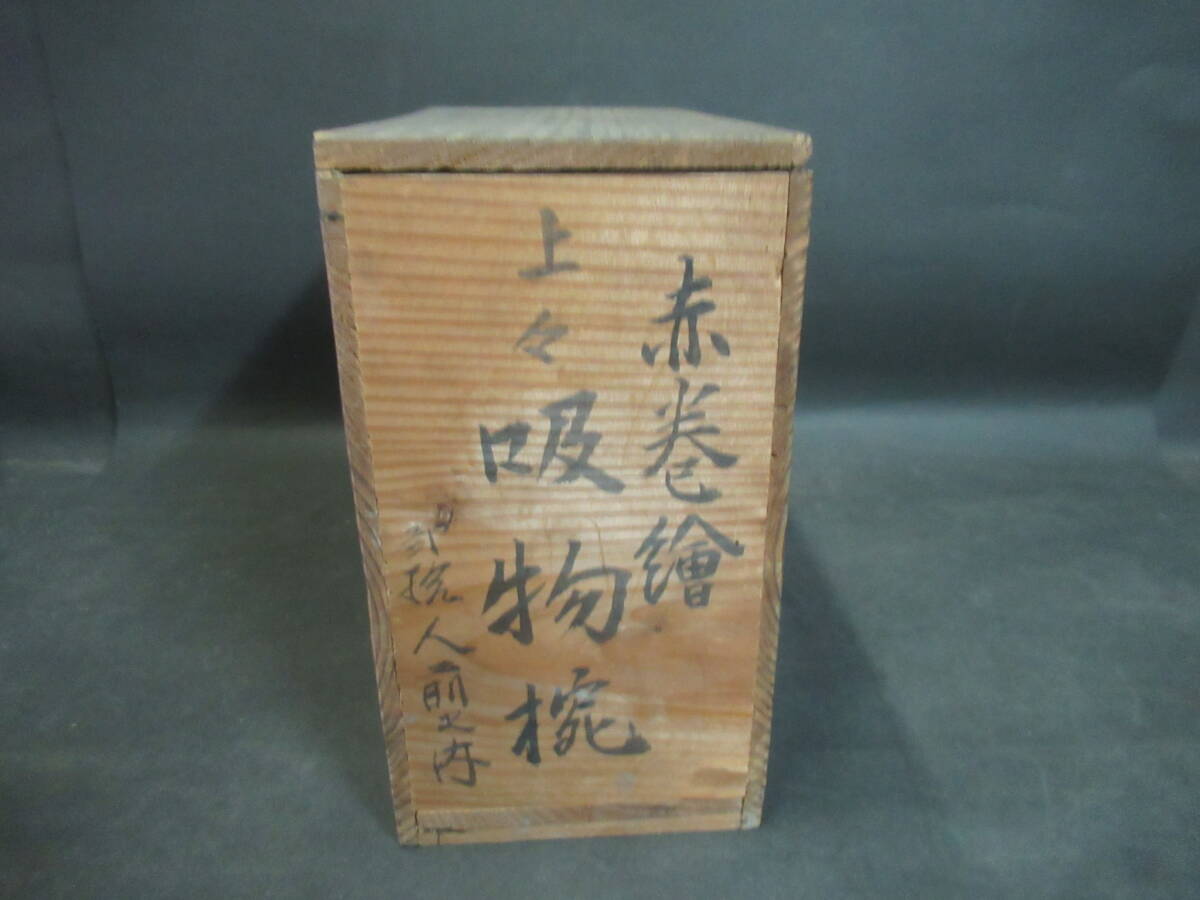 赤巻繪
上々吸物椀
弐拾人前之内